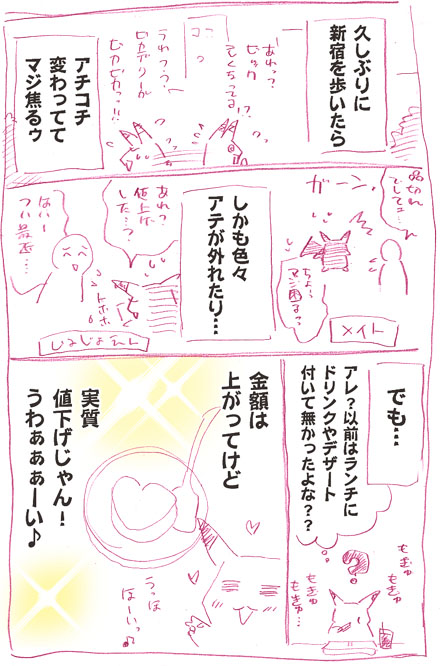 久しぶりに
新宿を歩いたら
あれっ?
ビック
そくちってる!?
ココっ
うわっ、う、
ピカデリーが
ピカピカっ!!
アチコチ
変わってて
マジ焦るゥ
品切れ
でしてェ…
ガーン、
ちょ…
マジ困るっ
メイト
しかも色々
アテが外れたり…
あれ?
値上げ
した…?
トホホ
はいー
つい最近…
でも…
アレ?以前はランチに
ドリンクやデザート
付いて無かったよな??
?
もきゅ
もきゅ
もきゅ
もきゅ…
金額は
上がってけど
実質
値下げじゃん!
うわぁぁぁーい♪
うっは
はーいっ♪